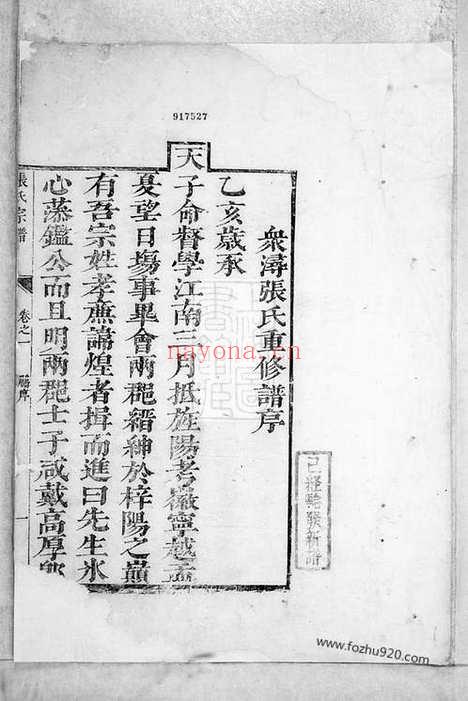 917527
衆潯張氏重修譜序
乙亥歲承
天子命督學江南三月抵旌陽考徽寧越孟
夏望日塲事畢會兩郡縉紳於梓陽之巔
有吾宗姓孝廉諱煌者揖而進曰先生氷
心藻鑑公而且明兩郡士子咸戴高厚
張氏宗譜 卷之一 序 一
nayona.cn
www.fozhu920.com